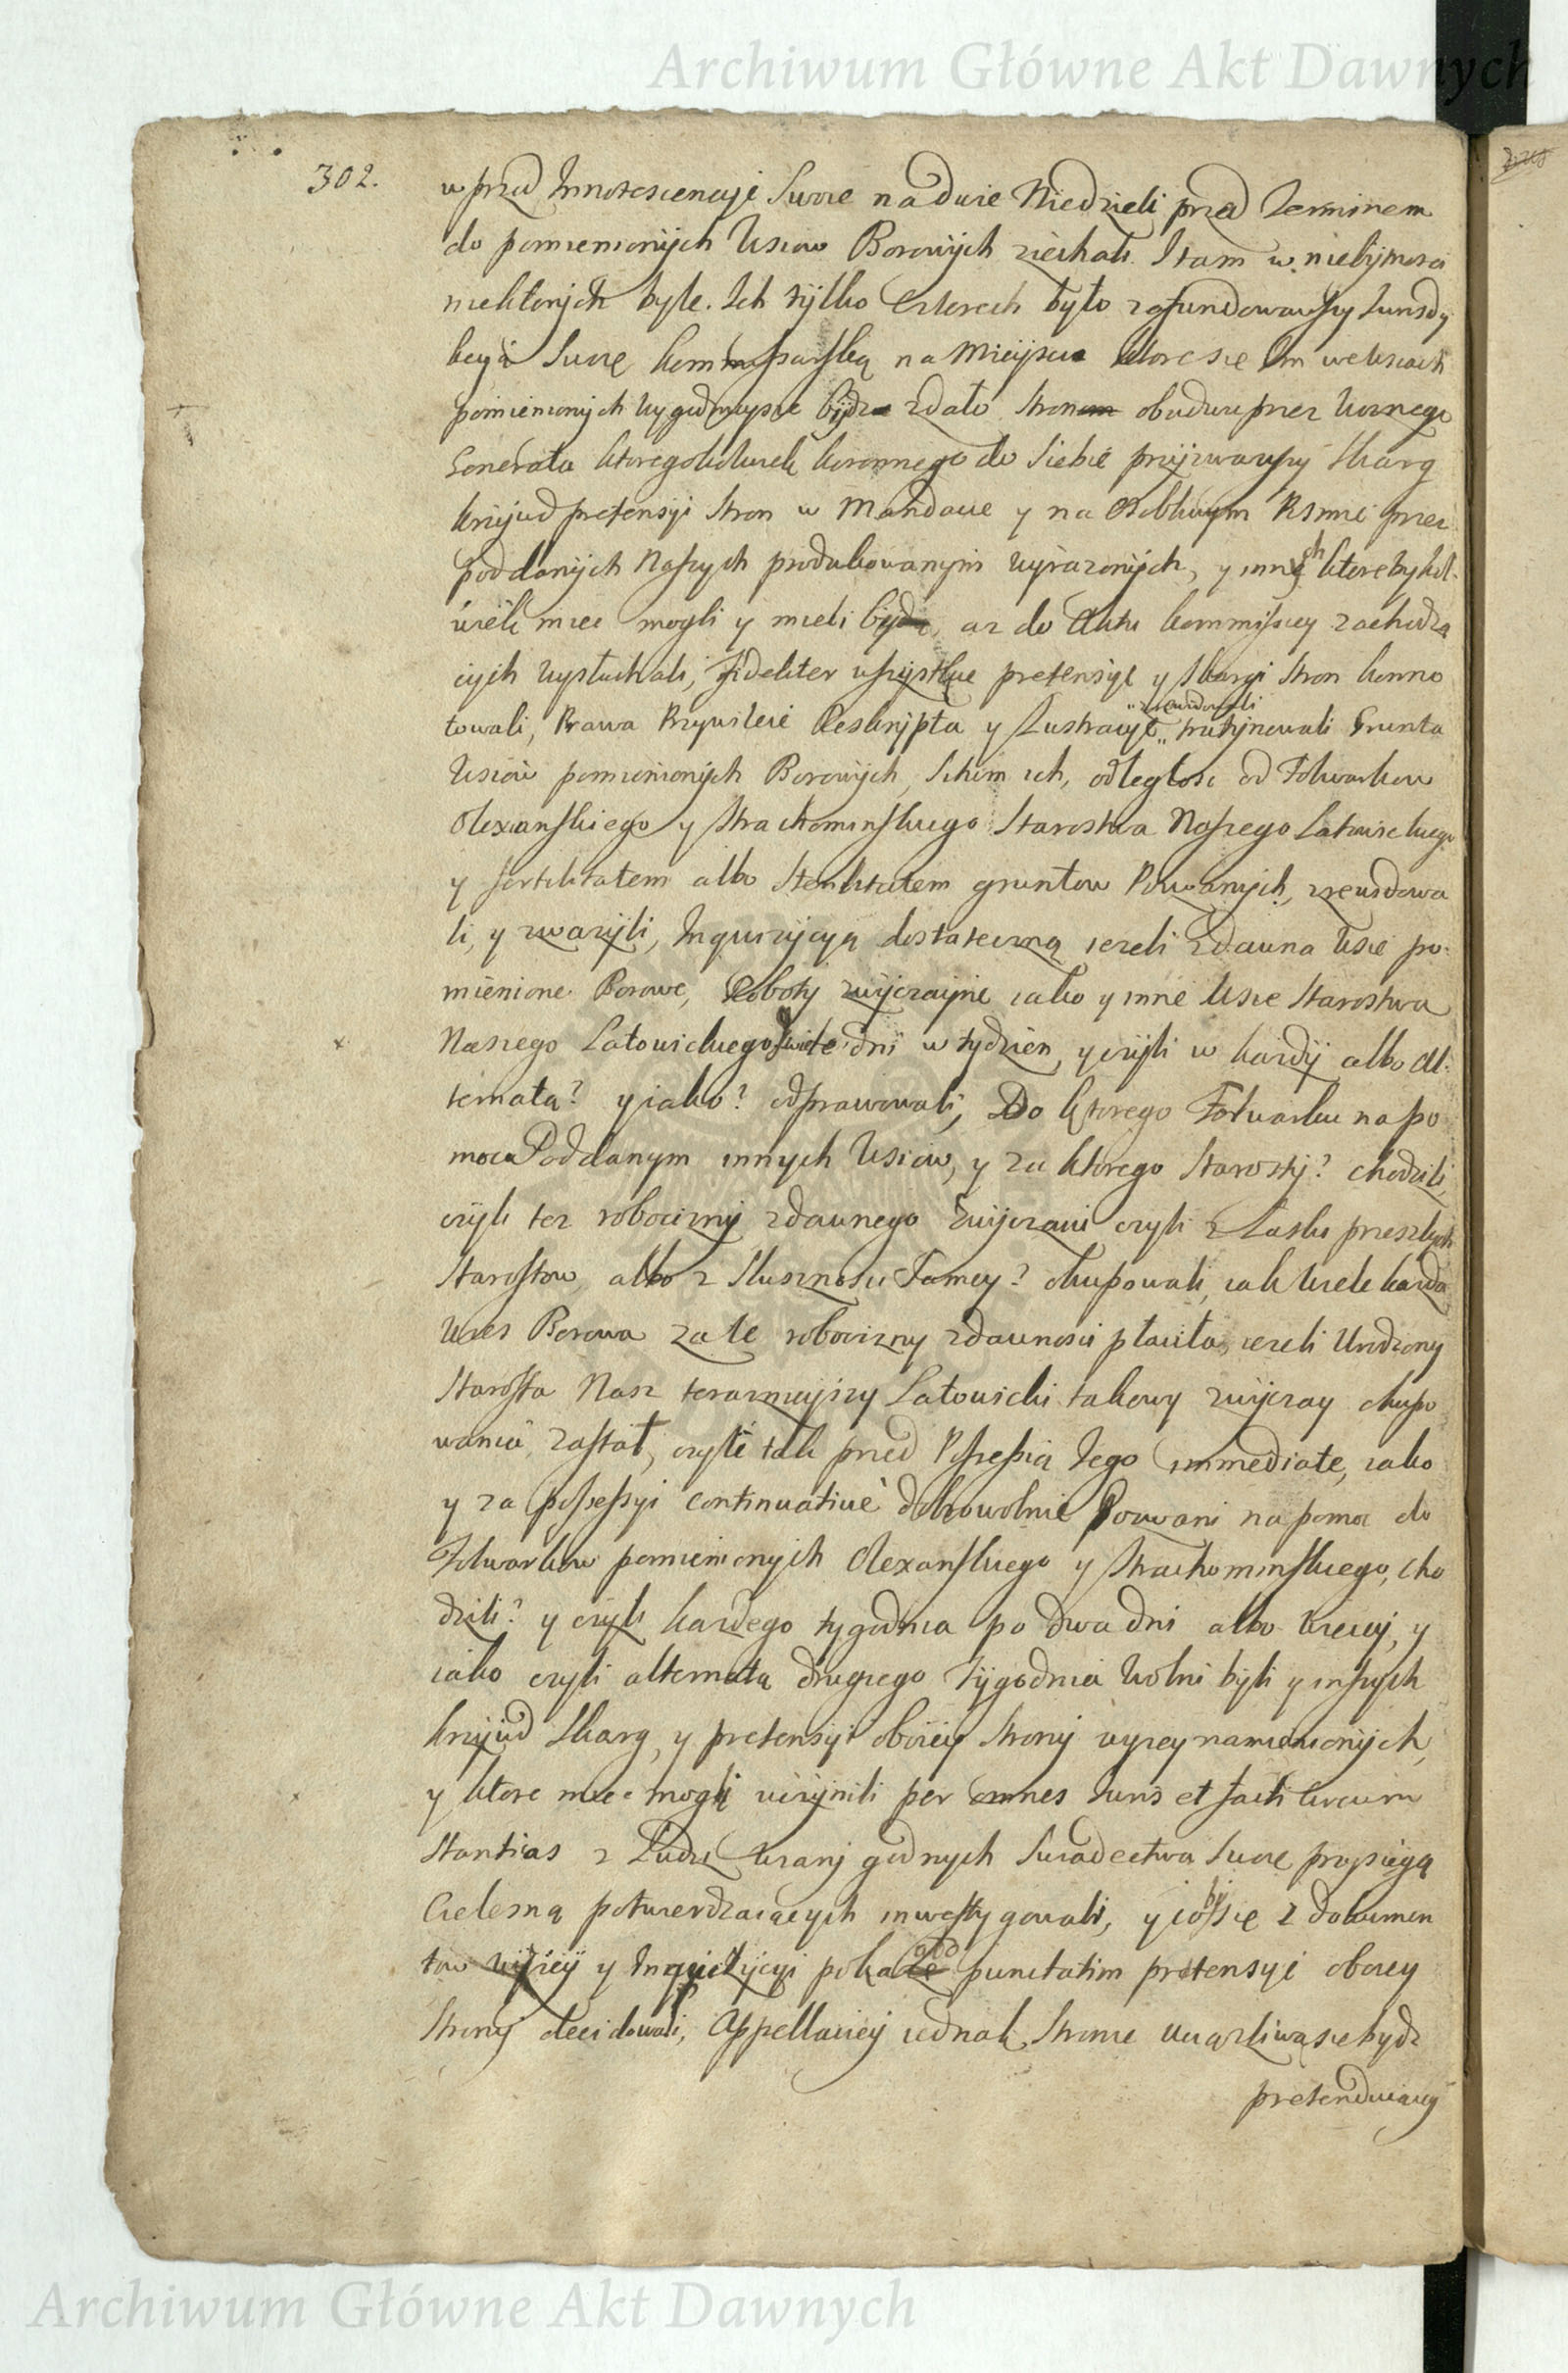 Archiwum Główne Akt Dawnych
302.
wprzod Innotescencyę Swoie na dwie Niedzieli przed Terminem
do pomienionych Wsiow Borowych ziechali. I tam w niebytnosci
niektorych byle. Ich tylko czterech było zafundowawszy Iurisdy
kcyą Swoię kommissarską na Mieyscu ktore się Im we wsiach
pomienionych wygodnieysze bydz zdało Stronom obudwu przez Woznego
Generała ktoregokolwiek koronnego do Siebie przyzwawszy Skarg
krzywd pretensyi Stron w Mandacie y na osobliwym Pismie przez
poddanych Naszych produkowanym wyrazonych, y innych ktoreby kol-
wiek miec mogli y mieli bydz, az do Aktu kommissyey zachodzą
cych wysłuchali, fideliter wszystkie pretensye y Skargi Stron konno
towali, Prawa Przywileie Reskrypta y Lustracye zrewidowali trutynowali Grunta
Wsiow pomienionych Borowych, Situm ich, odległosc od Folwarkow
Olexianskiego y Strachominskiego Starostwa Naszego Latowickiego
y fertilitatem albo Sterilitatem gruntow Pozwanych, zrewidowa
li, y zwazyli, Inquizycyą dostateczną iezeli zdawna Wsie po-
mienione Borowe, Roboty zwyczayne iako y inne Wsie Starostwa
Naszego Latowickiego dni w tydzien, y czyli w kazdy albo Al-
ternatą? y iako? odprawowali, Do ktorego Folwarku na po
moc Poddanym innych Wsiow, y za ktorego Starosty? chodzili,
czyli tez robocizny zdawnego Zwyczaiu czyli z Łaski przeszłych
Starostow, albo z Słusznosci Samey? okupowali, iak wiele kazda
Wies Borowa za te robocizny zdawnosci płaciła, iezeli Urodzony
Starosta Nasz teraznieyszy Latowicki takowy zwyczay okupo
wania zastał, czyli tak przed Possessią Iego immediate, iako
y za possessyi continuative dobrowolnie Pozwani na pomoc do
Folwarkow pomienionych Olexanskiego y Strachominskiego, cho
dzili? y czyli kazdego tygodnia po dwa dni albo wiecey, y
iako czyli alternatą drugiego Tygodnia Wolni byli y inszych
krzywd Skarg, y pretensyi oboiey Strony wyzey namienionych,
y ktore miec mogli uczynili per omnes Iuris et facti circum
Stantias z Ludzi wiary godnych Swiadectwa Swoie przysięgą
Cielesną potwierdzaiących inwestygowali, y coby się z dokumen
tow wyzey y Inquizycyi pokazało punctatim pretensyi oboiey
Strony decidowali, Appellacyey iednak Stronie uciązliwą się bydz
pretenduiącey
Archiwum Główne Akt Dawnych